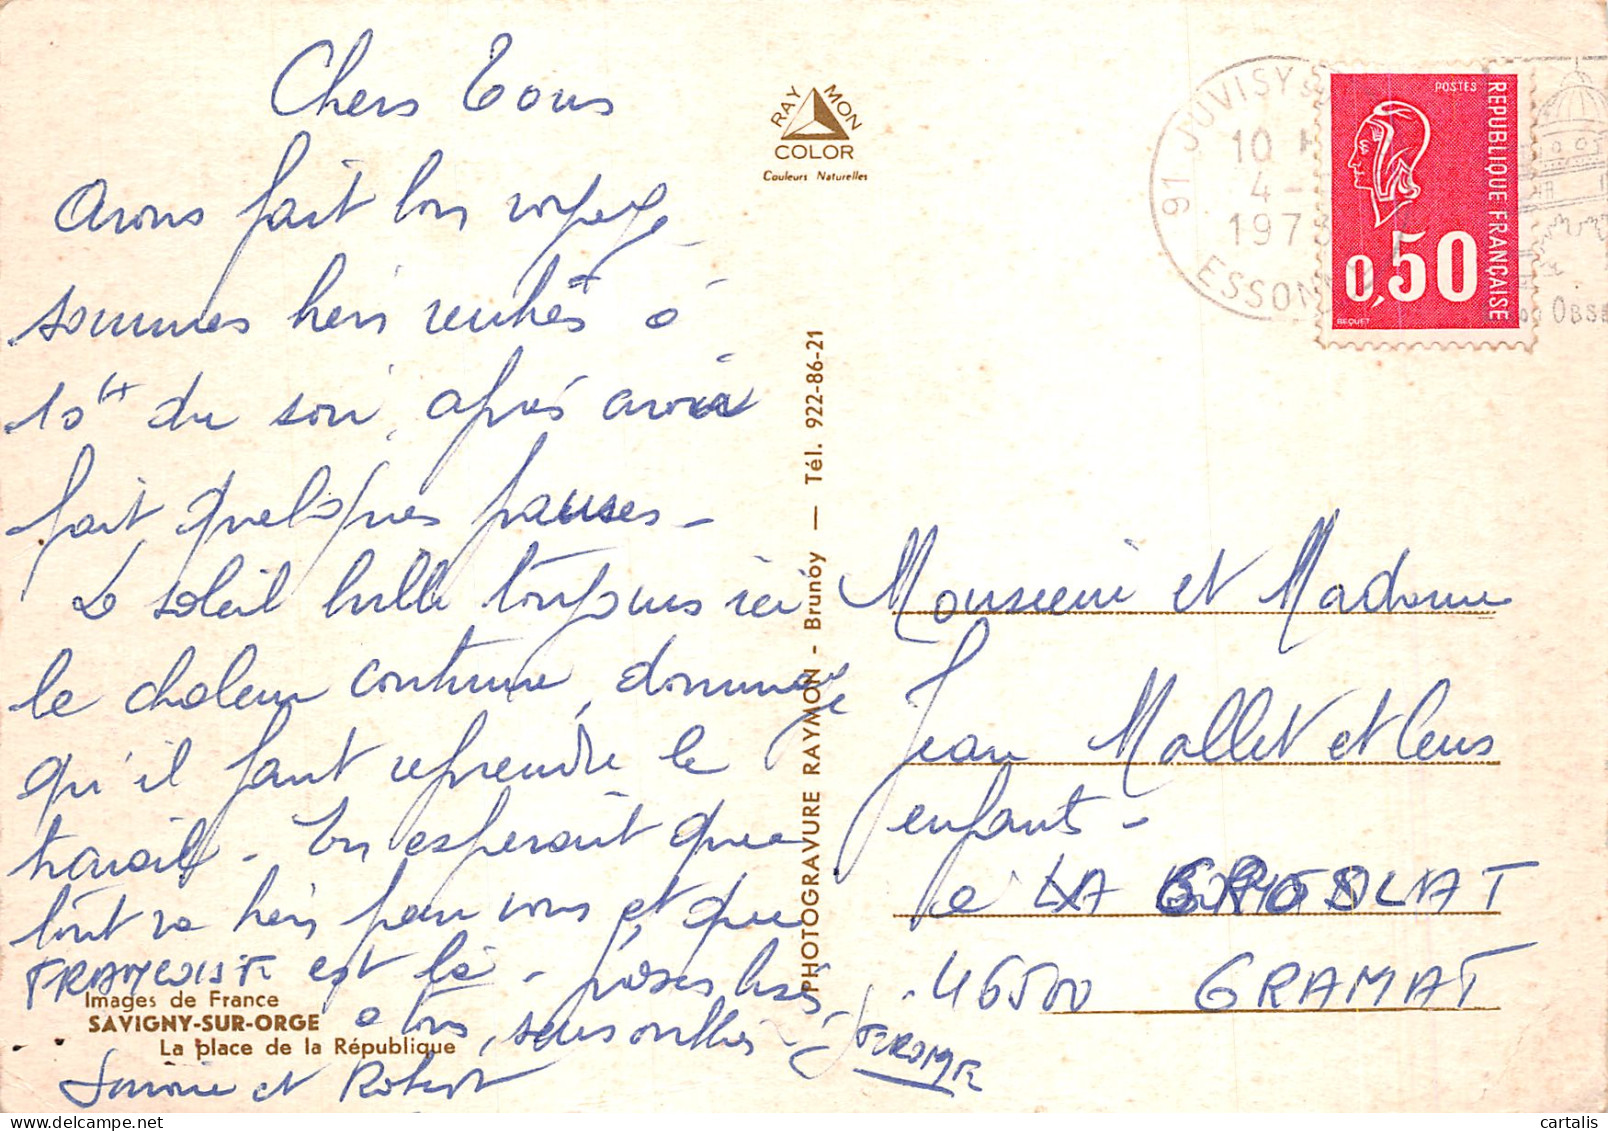 Chers Tous
Avons fait bon voyage
sommes bien rentrés à
10h du soir, après avoir
fait quelques pauses -
Le soleil brille toujours ici
la chaleur continue, dommage
qu'il faut reprendre le
travail - En esperant que
tout va bien pour vous et que
FRANÇOISE est là - grosses bises
a tous, sans oublier JEROME
Simone et Robert
Images de France
SAVIGNY-SUR-ORGE
La place de la République
RAYMON
COLOR
Couleurs Naturelles
PHOTOGRAVURE RAYMON - Brunoy — Tél. 922-86-21
91 JUVISY S
10 H
4 -
1973
ESSONNE
OBSE
POSTES
REPUBLIQUE FRANÇAISE
0,50
BEQUET
Monsieur et Madame
Jean Mallet et leurs
enfants -
a LA
46500 GRAMAT
cartalis